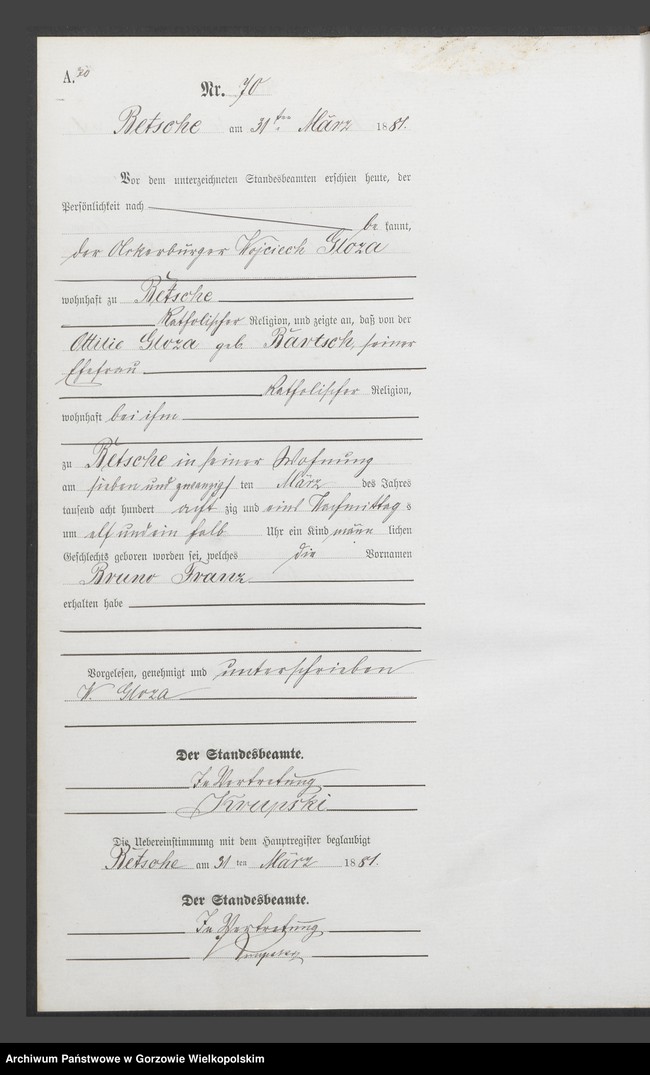 A. 70
Nr. 70
Betsche am 31ten März 1881.
Vor dem unterzeichneten Standesbeamten erschien heute, der
Persönlichkeit nach
be kannt,
der Ackerbürger Wojciech Gloza
wohnhaft zu Betsche
katholischer Religion, und zeigte an, daß von der
Ottilie Gloza geb. Bartsch, seiner
Ehefrau
katholischer Religion,
wohnhaft bei ihm
zu Betsche in seiner Wohnung
am sieben und zwanzigs ten März des Jahres
tausend acht hundert acht zig und eins Nachmittag s
um elf und ein halb Uhr ein Kind männ lichen
Geschlechts geboren worden sei, welches die Vornamen
Bruno Franz
erhalten habe
Vorgelesen, genehmigt und unterschrieben
W. Gloza
Der Standesbeamte.
In Vertretung
Krupski
Die Uebereinstimmung mit dem Hauptregister beglaubigt
Betsche am 31 ten März 1881.
Der Standesbeamte.
In Vertretung
Archiwum Państwowe w Gorzowie Wielkopolskim